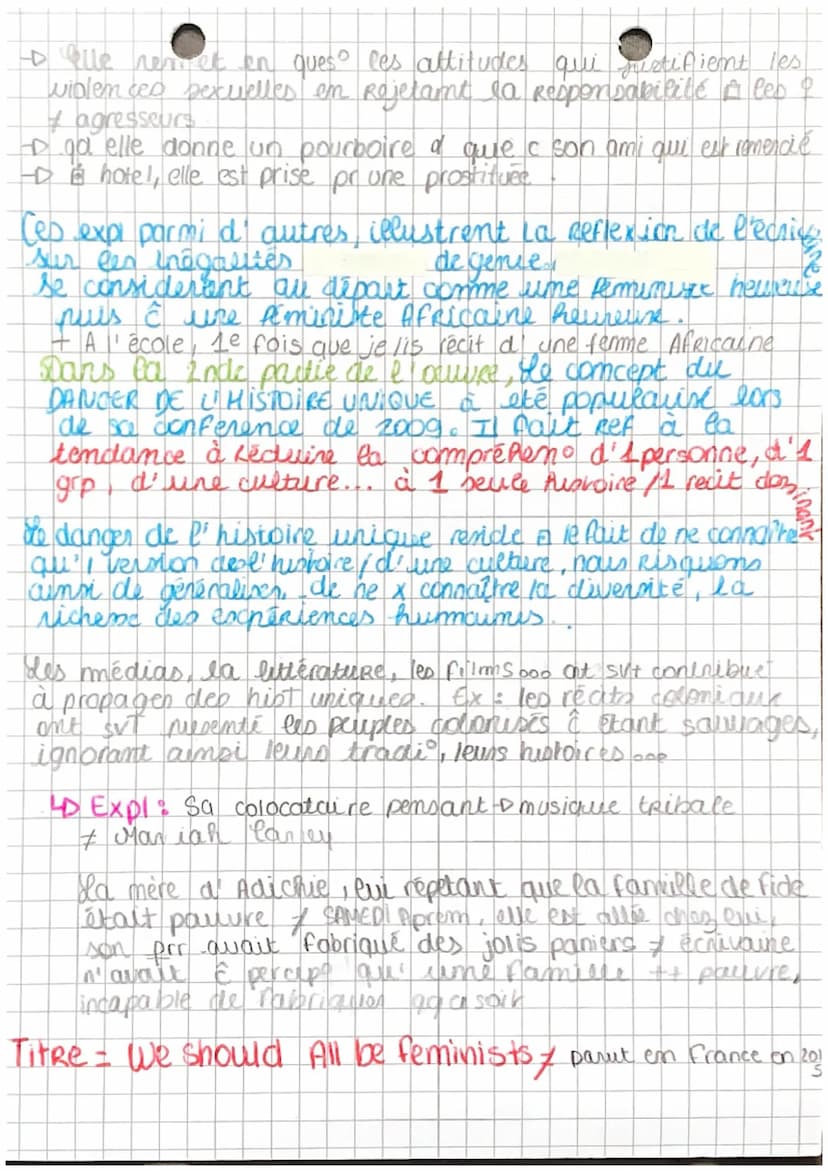 → Elle remet en ques° les attitudes qui justifient les
violences sexuelles en Rejetant la Responsabilité à les ♀
≠ agresseurs
→ qd elle donne un pourboire que c son ami qui est remercié
→ à hotel, elle est prise pr une prostituée.
Ces expl parmi d'autres, illustrent la Reflexion de l'écrivaine
sur les inégalités de genre,
se considérant au départ comme une féministe heureuse
puis ĉ une féministe Africaine heureuse.
+ A l'école, 1e fois que je lis récit d'une femme Africaine
Dans la 2nde partie de l'œuvre, Le concept du
DANGER DE L'HISTOIRE UNIQUE a été popularisé lors
de sa conférence de 2009. Il fait REF à la
tendance à Réduire la compréhen° d'1 personne, d'1
grp, d'une culture... à 1 seule histoire /1 recit dominant
Le danger de l'histoire unique reside le fait de ne connaître
qu'1 version de l'histoire / d'une culture, nous Risquons
ainsi de généraliser, de ne x connaître la diversité, la
richesse des expériences humaines...
Les médias, la littératuRE, les films... ont svt contribué
à propager des hist uniques. Ex : les récits coloniaux
ont svt présenté les peuples colonisés ĉ étant sauvages,
ignorant ainsi leurs tradi°, leurs histoires...
↳ Expl : Sa colocataire pensant → musique tribale
≠ Mariah Carey
La mère d'Adichie, lui répétant que la famille de Fide
était pauvre ≠ SAMEDI Aprem, elle est allée chez lui,
son frr avait fabriqué des jolis paniers ≠ écrivaine
n'avait percep° qu'une famille ++ pauvre,
incapable de fabriquer qq a soir
TitRe = We should All be feminists ≠ parut en France en 2015